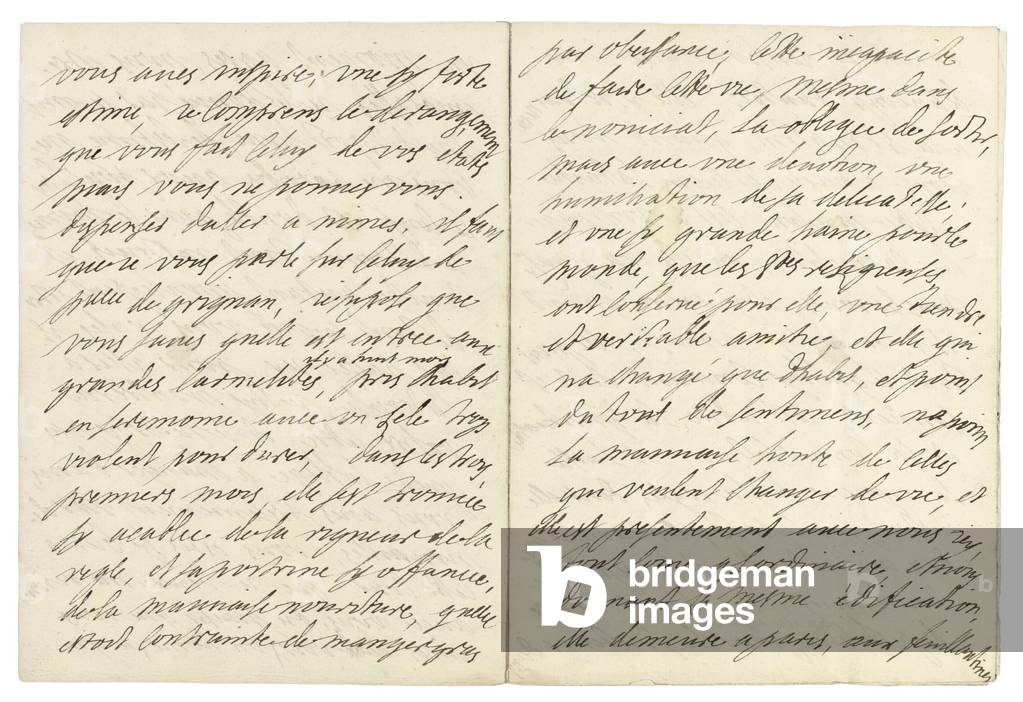 vous aves inspire, vne sy forte
estime, ie comprens le derangement
que vous fait celuy de vos etats
mais vous ne pouues vous
dispenser daller a nimes, il faut
que ie vous parle sur celuy de
de grignan, ie supose que
vous saues quelle est entree aux
il y a huit mois
grandes carmelites, pris lhabit
en seremoine auec vn sele trop
violent pour durer, dans les trois
premiers mois, elle sest trouuee
sy acablee de la rigueur de la
regle, et sa poitrine sy offancee,
de la mauuaise nouriture, quelle
estoit contrainte de manger gras
par obeissance, cette incapacite
de faire cette vie, mesme dans
le noviciat, la obligee de sortir,
mais auec vne deuotion, vne
humiliation de sa delicatesse,
et vne sy grande haine pour le
monde, que les stes religieuses
ont conserué pour elle, vne tendre
et veritable amitie, et elle qui
na changé que dhabit, et point
du tout de sentimens, na point
la mauuaise honte de celles
qui veulent changer de vie, et
elle est presentement auec nous icy
tout comme a lordinaire, et nous
donnant la mesme edification,
elle demeure a paris, aux feuillantines
bridgeman
images
b
b